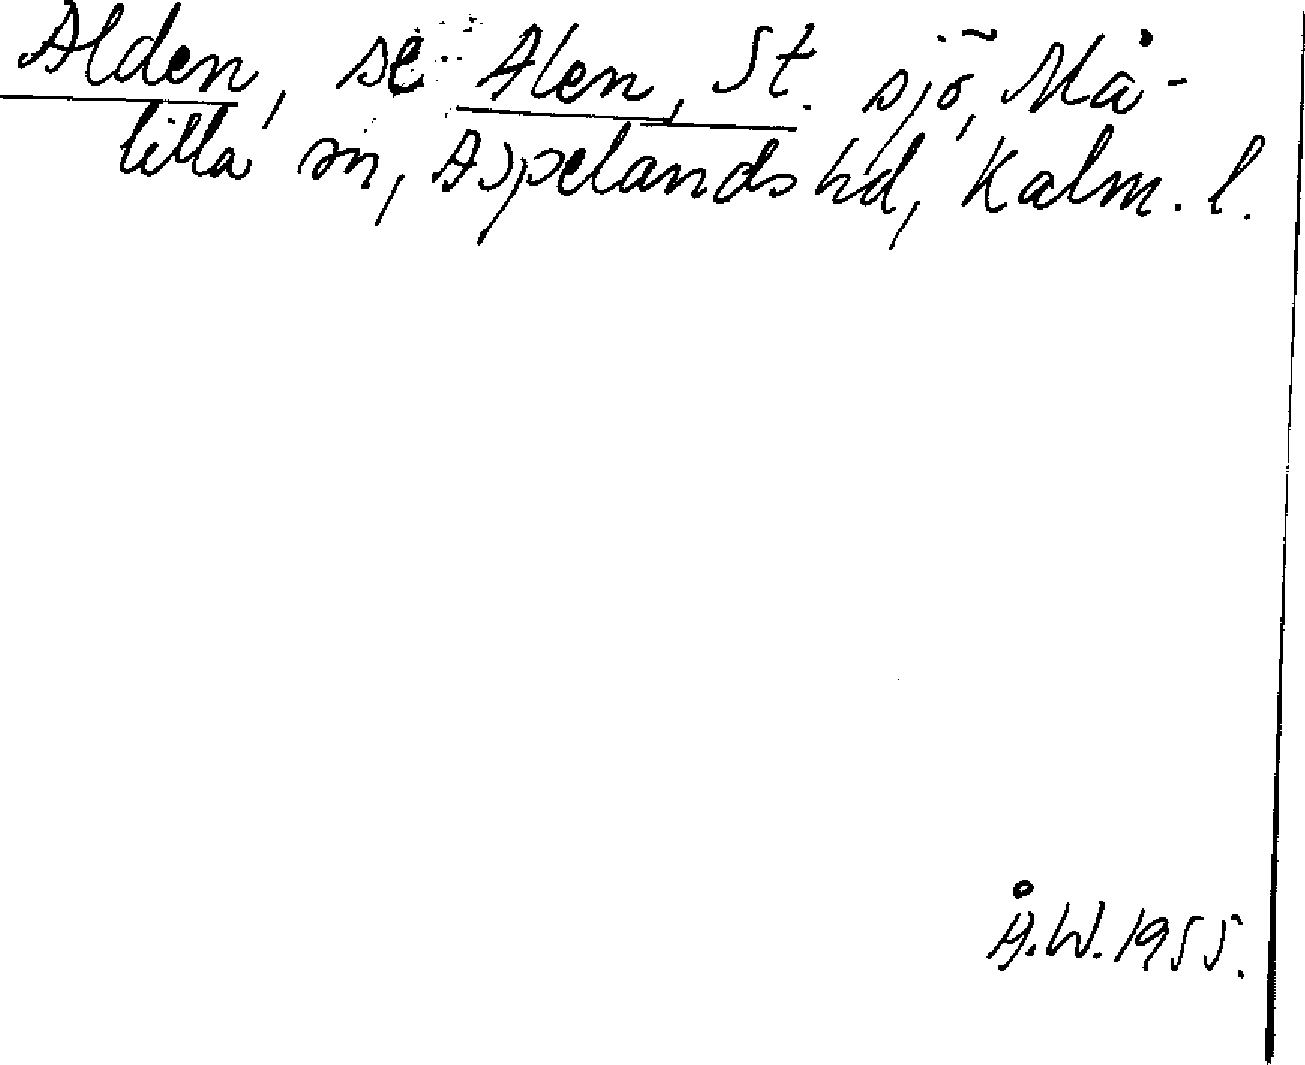 Alden, se Alen, St. sjö, Må-
lilla sn, Aspelands hd, Kalm. l.
Å.W. 1955.